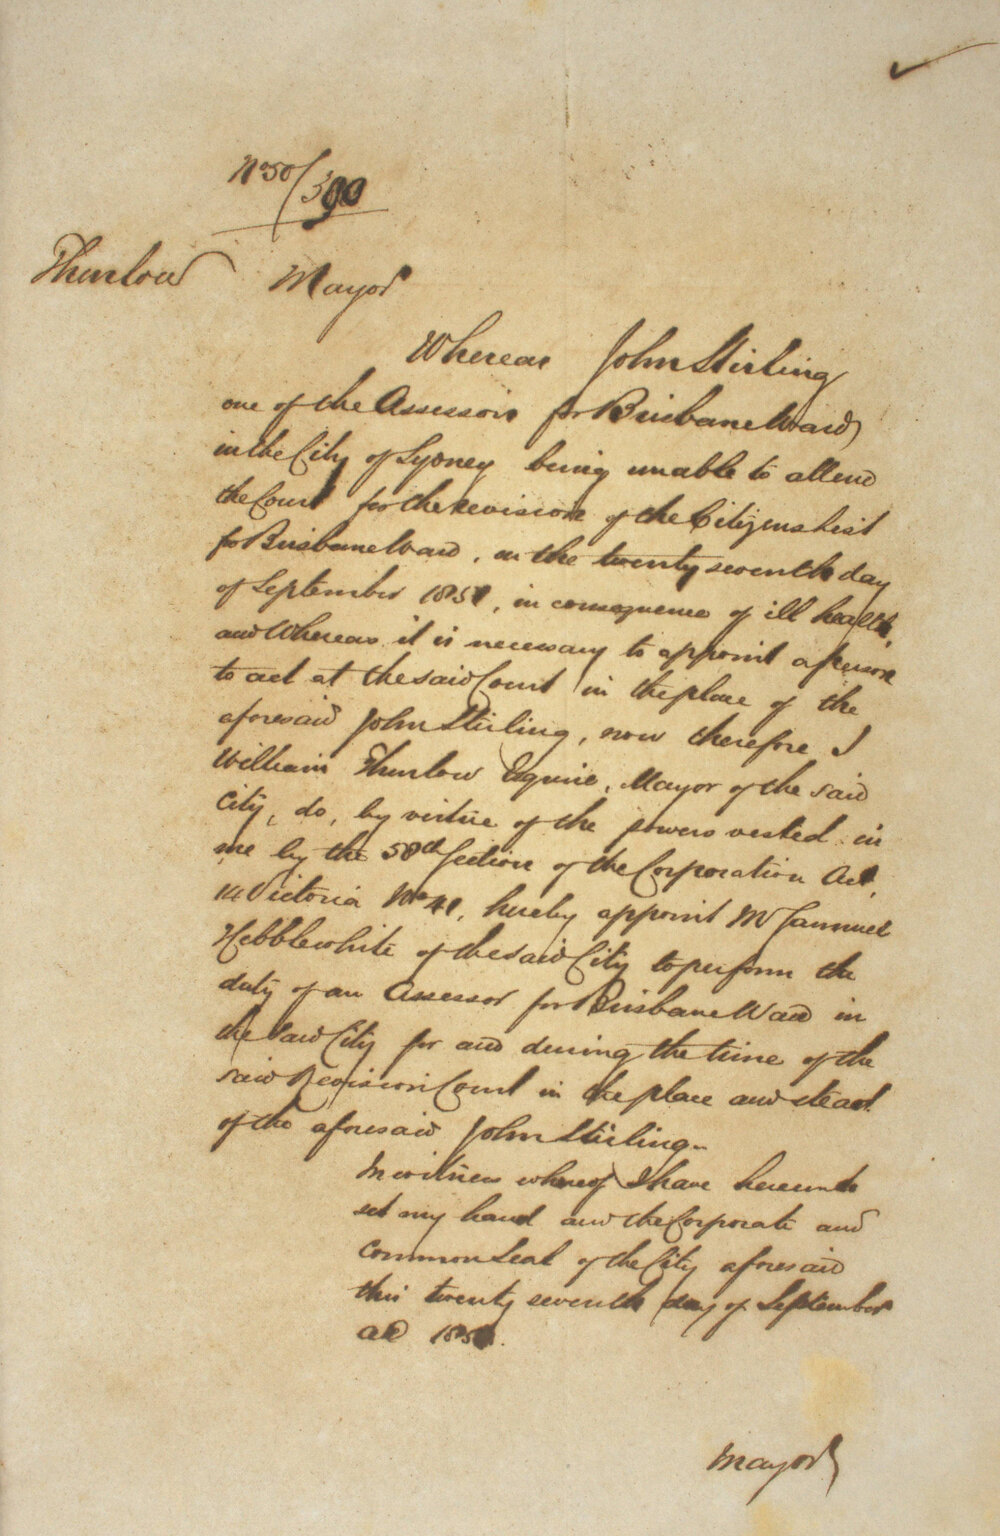 No 50/390
Thurlow Mayor
Whereas John Stirling
one of the Assessors for Brisbane Ward
in the City of Sydney being unable to attend
the Court for the Revision of the Citizens List
for Brisbane Ward, on the twenty seventh day
of September 1850, in consequence of ill health,
and Whereas it is necessary to appoint a person
to act at the said Court in the place of the
aforesaid John Stirling, now therefore I
William Thurlow Esquire, Mayor of the said
City, do, by virtue of the powers vested in
me by the 58th Section of the Corporation Act,
14 Victoria No 41, hereby appoint Mr Sammuel
Hebblewhite of the said City to perform the
duty of an Assessor for Brisbane Ward in
the said City for and during the time of the
said Revision Court in the place and stead
of the aforesaid John Stirling.
In witness whereof I have hereunto
set my hand and the Corporate and
Common Seal of the City aforesaid
this twenty seventh day of September
AD 1850.
Mayor